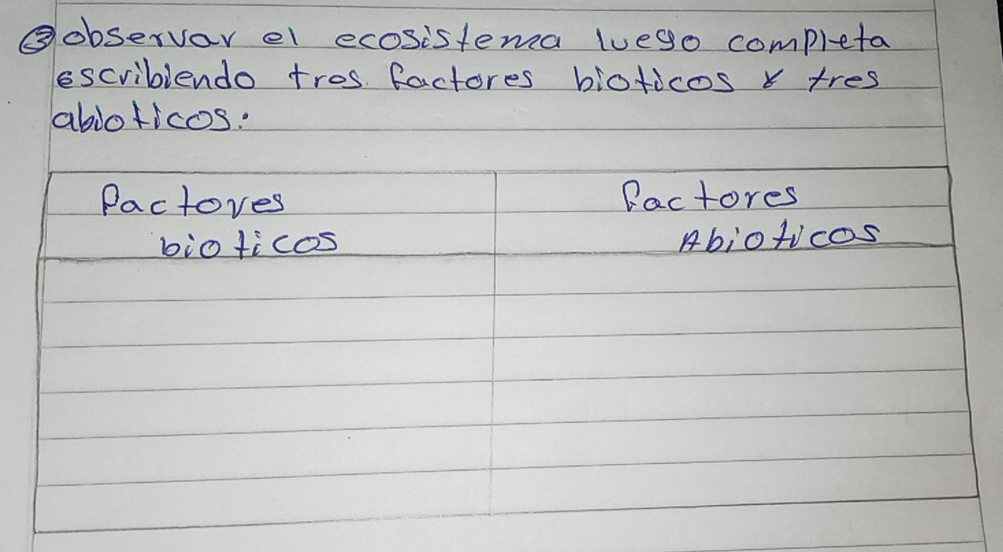 ③ observar el ecosistema luego completa
escribiendo tres. factores bioticos y tres
abioticos:
Factores
bioticos
Factores
Abioticos